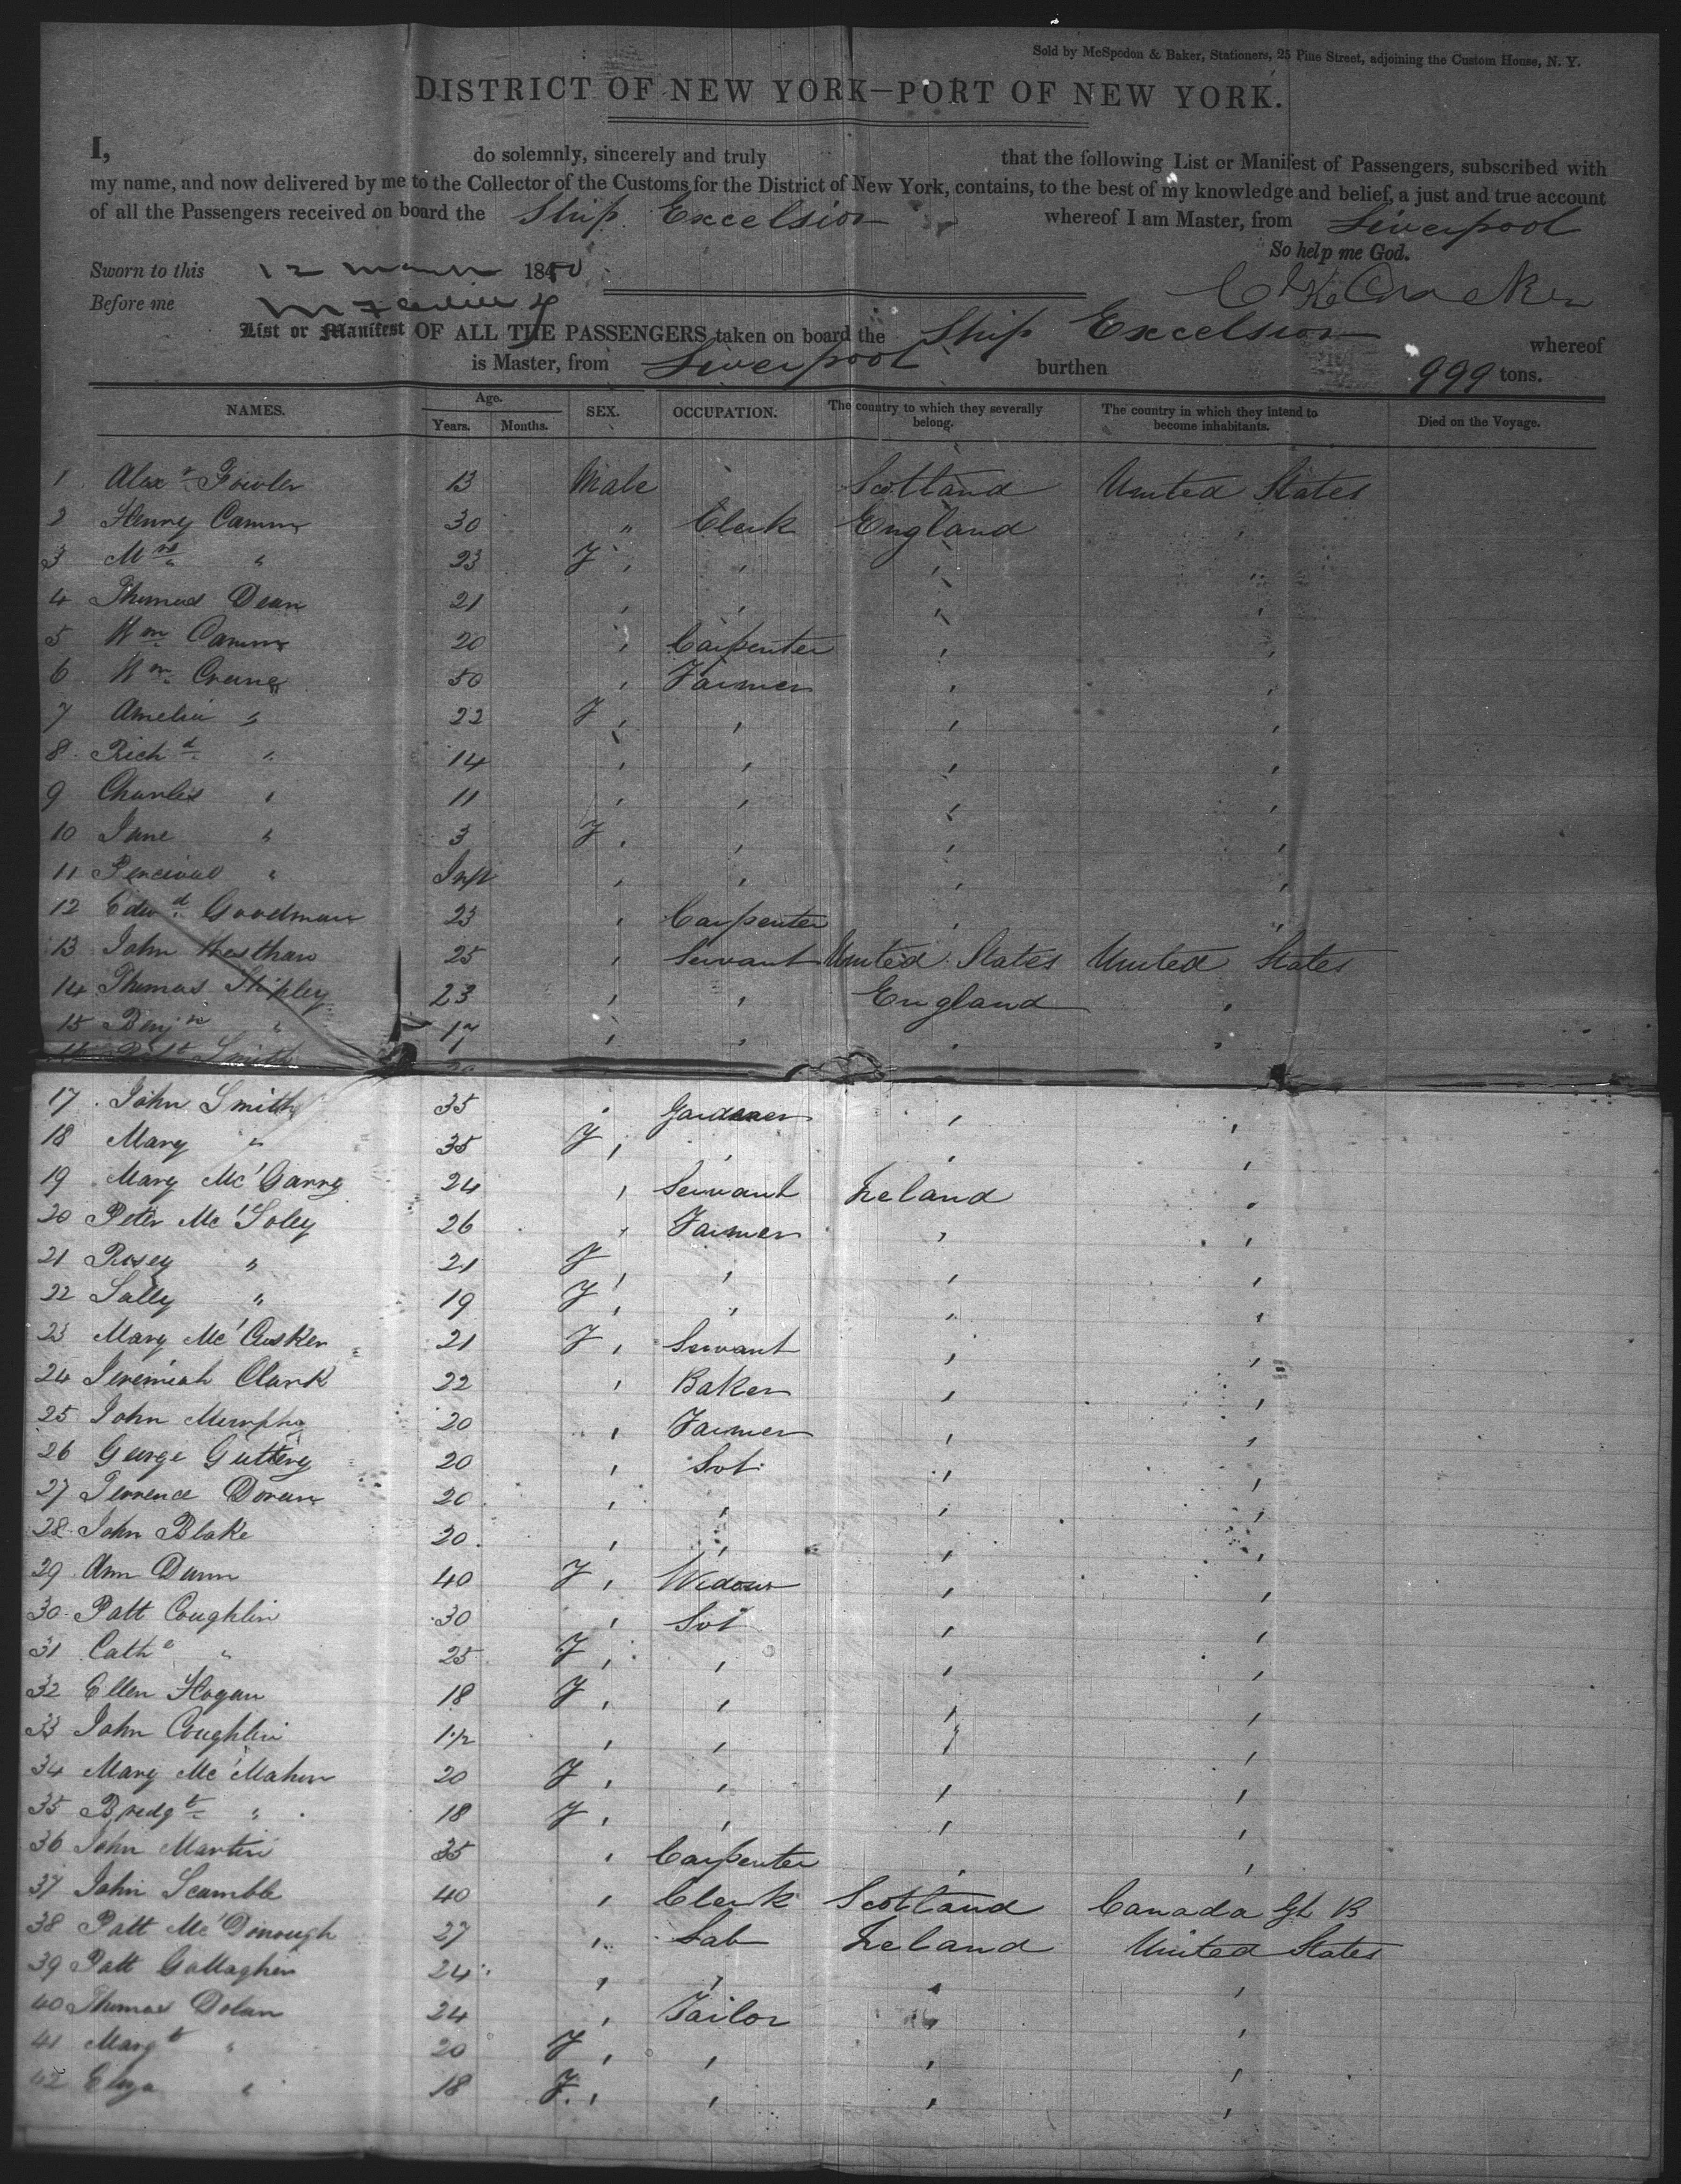 Sold by McSpedon & Baker, Stationers, 25 Pine Street, adjoining the Custom House, N. Y.
DISTRICT OF NEW YORK—PORT OF NEW YORK.
I, do solemnly, sincerely and truly that the following List or Manifest of Passengers, subscribed with
my name, and now delivered by me to the Collector of the Customs for the District of New York, contains, to the best of my knowledge and belief, a just and true account
of all the Passengers received on board the Ship Excelsior whereof I am Master, from Liverpool
So help me God.
Sworn to this 12 March 1850
Before me
List or Manifest OF ALL THE PASSENGERS taken on board the Ship Excelsior whereof
is Master, from Liverpool burthen 999 tons.
NAMES. Age. Years. Months. SEX. OCCUPATION. The country to which they severally belong. The country in which they intend to become inhabitants. Died on the Voyage.
1 Alexr Fowler 13 Male Scotland United States
2 Henry Camm 30 " Clerk England
3 Mrs " 23 F , , ,
4 Thomas Dean 21 , , , ,
5 Wm Camm 20 , Carpenter , ,
6 Wm Crane 50 , Farmer , ,
7 Amelia " 22 F , , , ,
8 Richd " 14 , , , ,
9 Charles " 11 , , , ,
10 Jane " 3 F , , , ,
11 Percival " Inft , , , ,
12 Edwd Goodman 23 , Carpenter , ,
13 John 25 , Servant United States United States
14 Thomas Shipley 23 , , England ,
15 Benjn " 17 , , , ,
16 Robt Smith
17 John Smith 35 , Gardener , ,
18 Mary " 35 F , , , ,
19 Mary Mc'Garry 24 , Servant Ireland ,
20 Peter Mc' 26 , Farmer , ,
21 Rosey " 21 F , , , ,
22 Sally " 19 F , , , ,
23 Mary Mc'Cusker 21 F , Servant , ,
24 Jeremiah Clark 22 , Baker , ,
25 John Murphy 20 , Farmer , ,
26 George Guttery 20 , , ,
27 Terrence Doran 20 , , , ,
28 John Blake 20 , , , ,
29 Ann Dunn 40 F , Widow , ,
30 Patt Coughlin 30 , , ,
31 Cathe " 25 F , , , ,
32 Ellen Hogan 18 F , , , ,
33 John Coughlin , , , ,
34 Mary Mc'Mahon 20 F , , , ,
35 Bredgt " 18 F , , , ,
36 John Martin 35 , Carpenter , ,
37 John Scamble 40 , Clerk Scotland Canada Gt B
38 Patt Mc'Donough 27 , Lab Ireland United States
39 Patt Gallagher 24 , , , ,
40 Thomas Dolan 24 , Tailor , ,
41 Margt " 20 F , , , ,
42 Eliza " 18 F. , , , ,